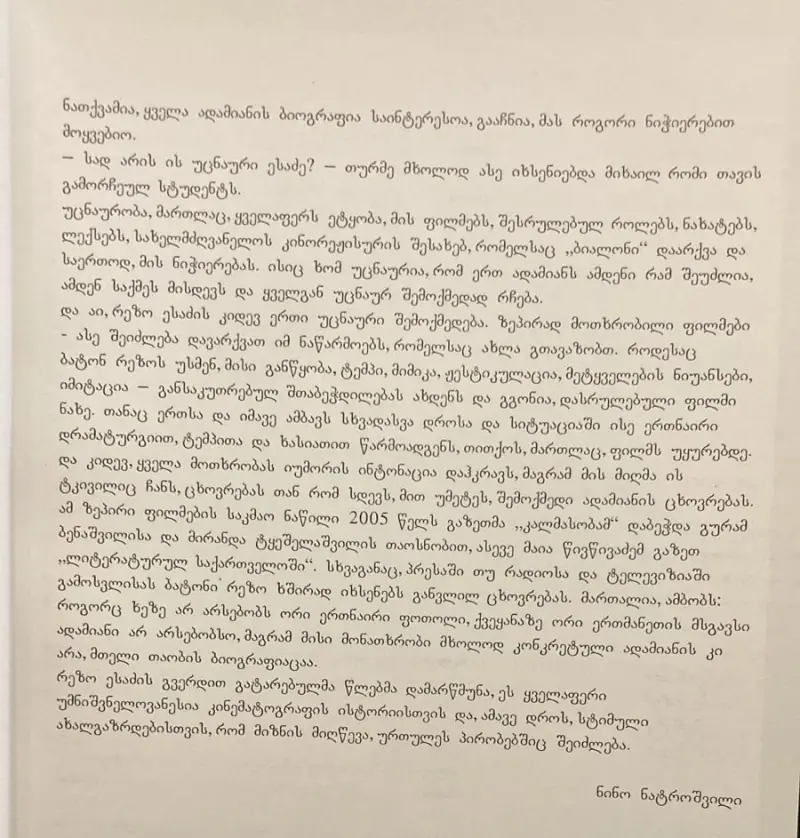 ნათქვამია, ყველა ადამიანის ბიოგრაფია საინტერესოა, გააჩნია, მას როგორი ნიჭიერებით
მოყვებიო.
— სად არის ის უცნაური ესაძე? — თურმე მხოლოდ ასე იხსენიებდა მიხაილ რომი თავის
გამორჩეულ სტუდენტს.
უცნაურობა, მართლაც, ყველაფერს ეტყობა, მის ფილმებს, შესრულებულ როლებს, ნახატებს,
ლექსებს, სახელმძღვანელოს კინორეჟისურის შესახებ, რომელსაც „ბიალონი“ დაარქვა და
საერთოდ, მის ნიჭიერებას. ისიც ხომ უცნაურია, რომ ერთ ადამიანს ამდენი რამ შეუძლია,
ამდენ საქმეს მისდევს და ყველგან უცნაურ შემოქმედად რჩება.
და აი, რეზო ესაძის კიდევ ერთი უცნაური შემოქმედება. ზეპირად მოთხრობილი ფილმები
- ასე შეიძლება დავარქვათ იმ ნაწარმოებს, რომელსაც ახლა გთავაზობთ. როდესაც
ბატონ რეზოს უსმენ, მისი განწყობა, ტემპი, მიმიკა, ჟესტიკულაცია, მეტყველების ნიუანსები,
იმიტაცია — განსაკუთრებულ შთაბეჭდილებას ახდენს და გგონია, დასრულებული ფილმი
ნახე. თანაც ერთსა და იმავე ამბავს სხვადასვა დროსა და სიტუაციაში ისე ერთნაირი
დრამატურგიით, ტემპითა და ხასიათით წარმოადგენს, თითქოს, მართლაც, ფილმს უყურებდე.
და კიდევ, ყველა მოთხრობას იუმორის ინტონაცია დაჰკრავს, მაგრამ მის მიღმა ის
ტკივილიც ჩანს, ცხოვრებას თან რომ სდევს, მით უმეტეს, შემოქმედი ადამიანის ცხოვრებას.
ამ ზეპირი ფილმების საკმაო ნაწილი 2005 წელს გაზეთმა „კალმასობამ“ დაბეჭდა გურამ
ბენაშვილისა და მირანდა ტყეშელაშვილის თაოსნობით, ასევე მაია წივწივაძემ გაზეთ
„ლიტერატურულ საქართველოში“. სხვაგანაც, პრესაში თუ რადიოსა და ტელევიზიაში
გამოსვლისას ბატონი რეზო ხშირად იხსენებს განვლილ ცხოვრებას. მართალია, ამბობს:
როგორც ხეზე არ არსებობს ორი ერთნაირი ფოთოლი, ქვეყანაზე ორი ერთმანეთის მსგავსი
ადამიანი არ არსებობსო, მაგრამ მისი მონათხრობი მხოლოდ კონკრეტული ადამიანის კი
არა, მთელი თაობის ბიოგრაფიაცაა.
რეზო ესაძის გვერდით გატარებულმა წლებმა დამარწმუნა, ეს ყველაფერი
უმნიშვნელოვანესია კინემატოგრაფის ისტორიისთვის და, ამავე დროს, სტიმული
ახალგაზრდებისთვის, რომ მიზნის მიღწევა, ურთულეს პირობებშიც შეიძლება.
ნინო ნატროშვილი